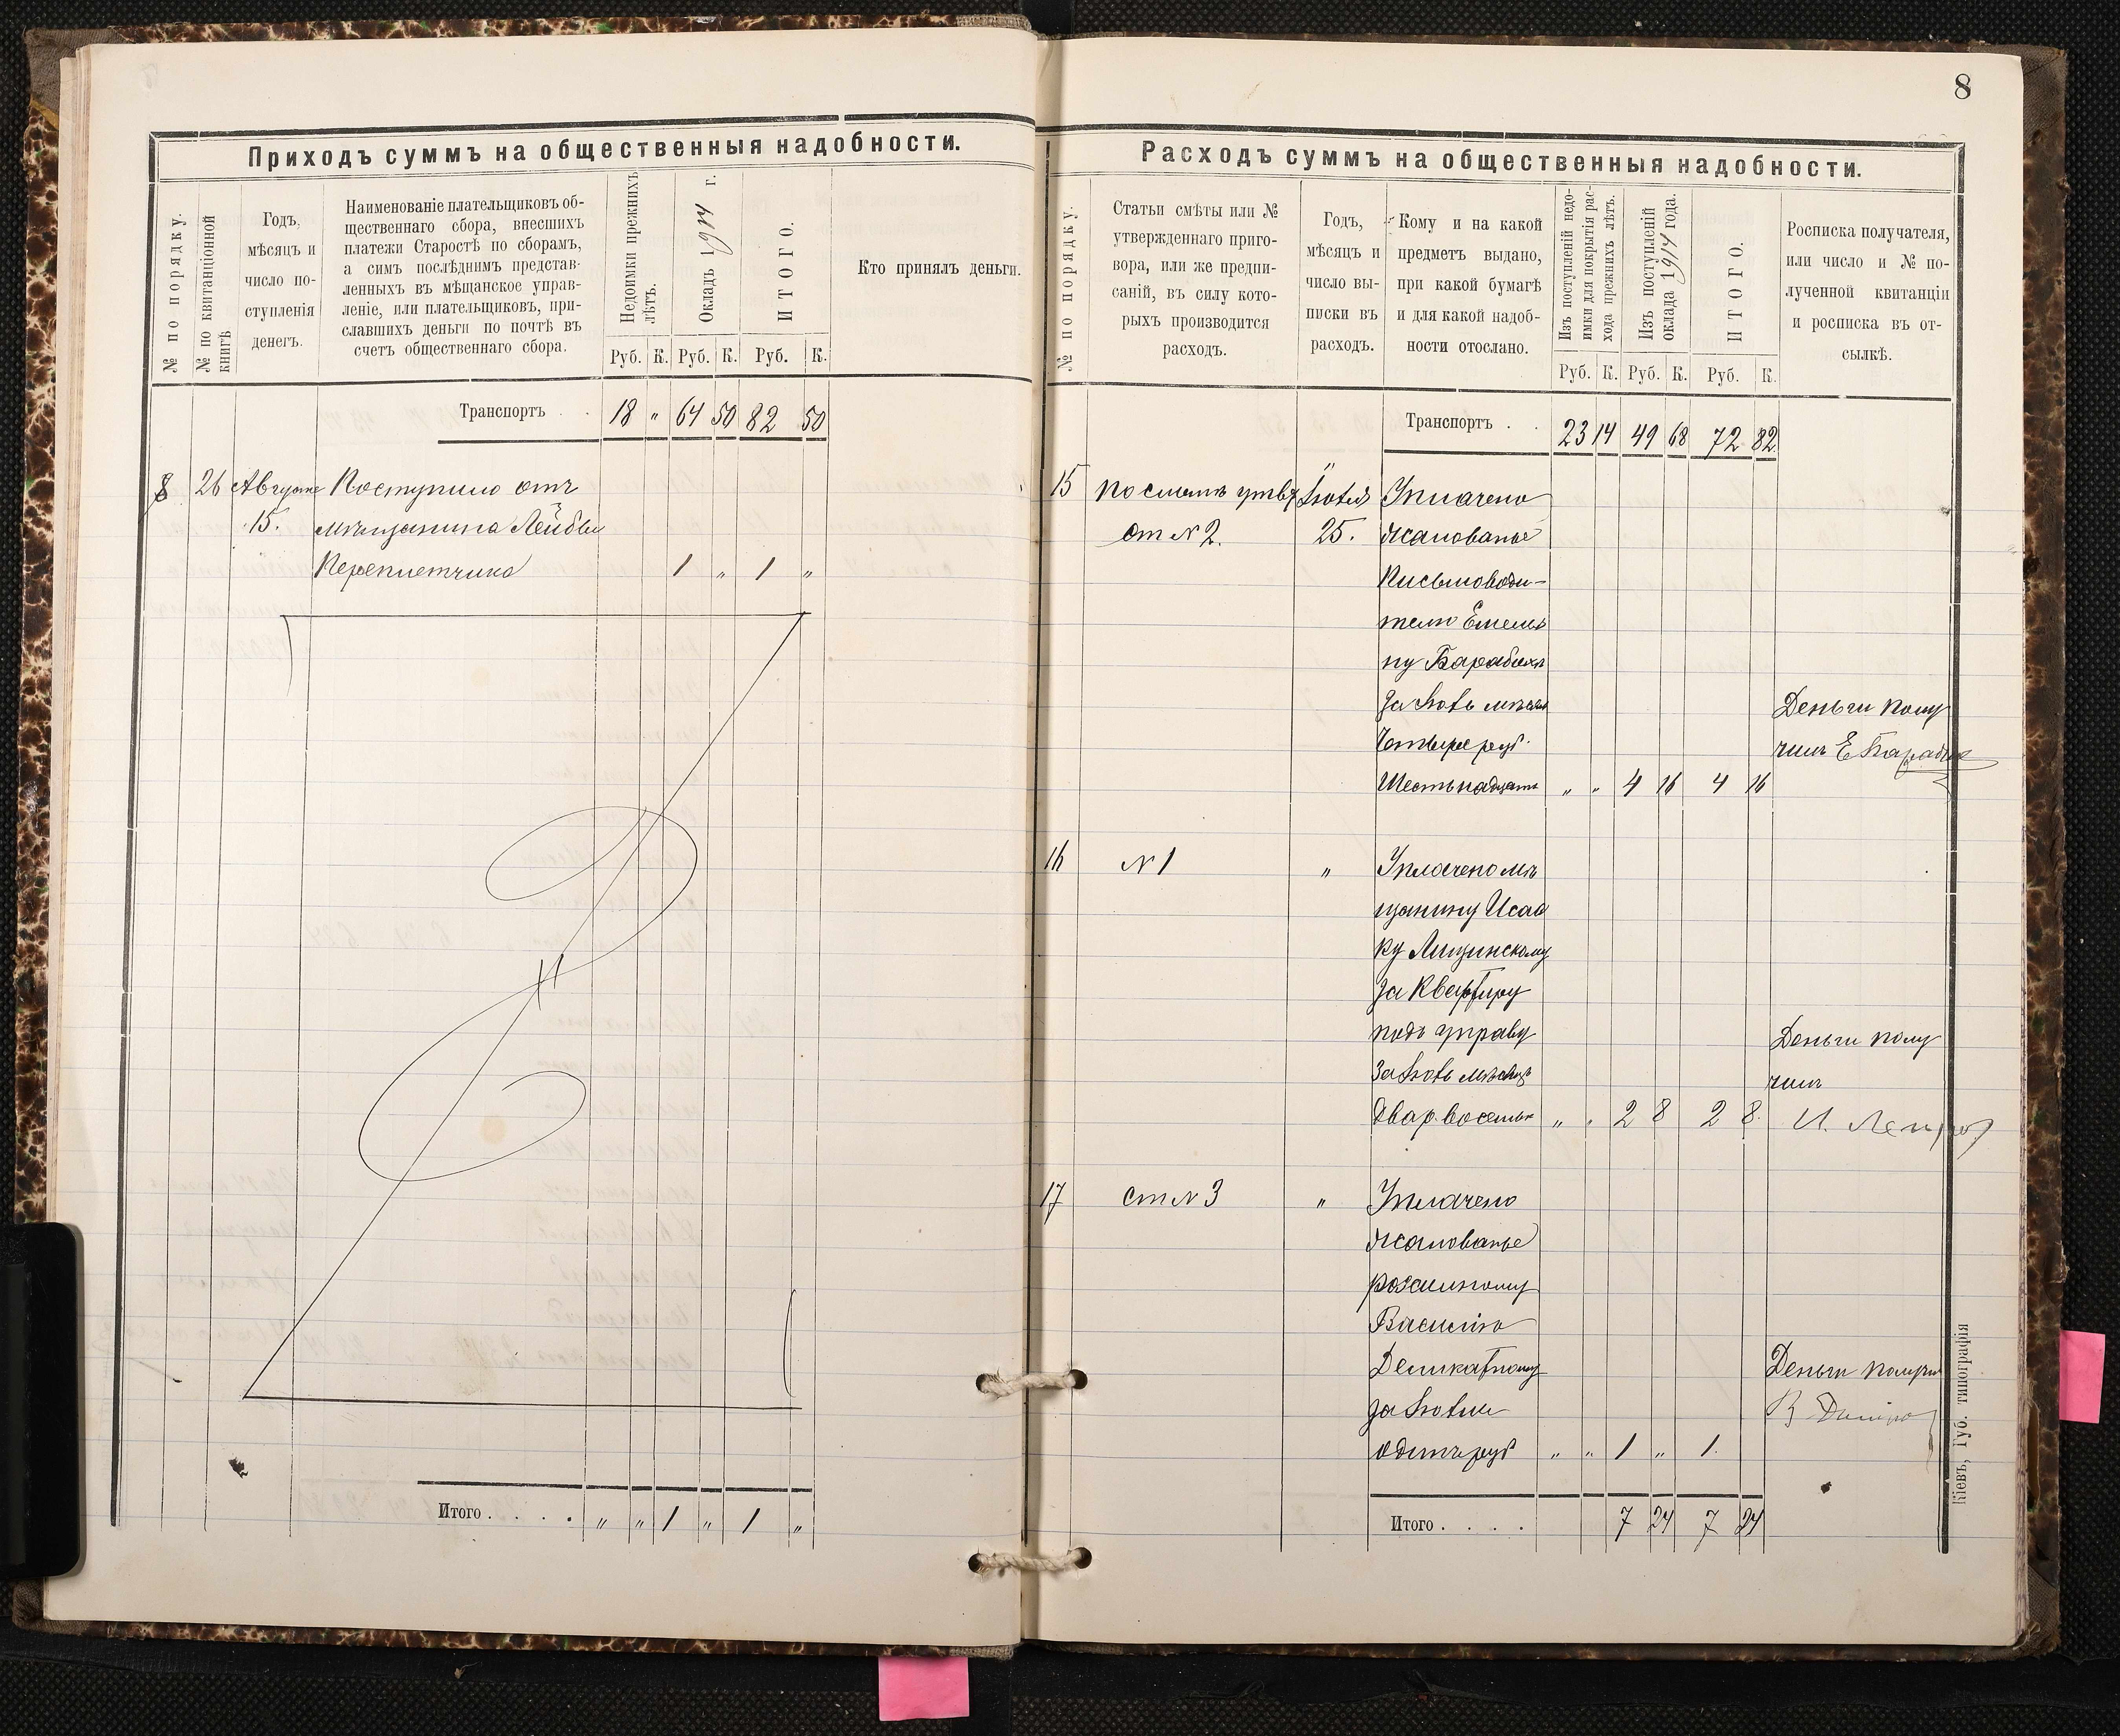 8
Приходъ суммъ на общественныя надобности.
№ по порядку.
№ по квитанціонной книгѣ
Годъ,
мѣсяцъ и
число по-
ступленія
денегъ.
Наименованіе плательщиковъ об-
щественнаго сбора, внесшихъ
платежи Старостѣ по сборамъ,
а симъ послѣднимъ представ-
ленныхъ въ мѣщанское управ-
леніе, или плательщиковъ, при-
славшихъ деньги по почтѣ въ
счетъ общественнаго сбора.
Недоимки прежнихъ
лѣтъ.
Окладъ 1914 г.
ИТОГО.
Руб. К. Руб. К. Руб. К.
Кто принялъ деньги.
Транспортъ . . 18 " 64 50 82 50
8 26 Августа Поступило отъ
15. мѣщанина Лейбы
Переплетчика 1 " 1 "
Итого . . . . " " 1 " 1 "
Расходъ суммъ на общественныя надобности.
№ по порядку.
Статьи смѣты или №
утвержденнаго приго-
вора, или же предпи-
саній, въ силу кото-
рыхъ производится
расходъ.
Годъ,
мѣсяцъ и
число вы-
писки въ
расходъ.
Кому и на какой
предметъ выдано,
при какой бумагѣ
и для какой надоб-
ности отослано.
Изъ поступленій недо-
имки для покрытія рас-
хода прежнихъ лѣтъ.
Изъ поступленій
оклада 1914 года.
ИТОГО.
Руб. К. Руб. К. Руб. К.
Росписка получателя,
или число и № по-
лученной квитанціи
и росписка въ от-
сылкѣ.
Транспортъ . . 23 14 49 68 72 82
15 по смѣтѣ Уплачено
ст № 2. 25. жалованье
Письмоводи-
телю Емелья
ну
за мѣсяцъ Деньги полу
четыре руб. чилъ Е
Шестьнадцать " " 4 16 4 16
16 № 1 " Уплачено мѣ
щанину Исаа
ку Лищинскому
за квартиру
подъ управу Деньги полу
за мѣсяцъ чилъ
два р. восемь к " " 2 8 2 8. И.
17 ст № 3 " Уплачено
жалованье
розсыльному
Василію
Деликатному Деньги получи
за В
одинъ руб " " 1 " 1.
Итого . . . . 7 24 7 24
Кіевъ, Губ. типографія